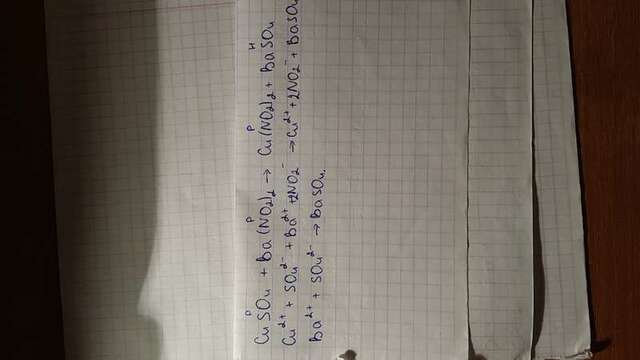 CuSO₄ + Ba(NO₂)₂ → Cu(NO₂)₂ + BaSO₄
Cu²⁺ + SO₄²⁻ + Ba²⁺ + 2NO₂⁻ → Cu²⁺ + 2NO₂⁻ + BaSO₄
Ba²⁺ + SO₄²⁻ → BaSO₄